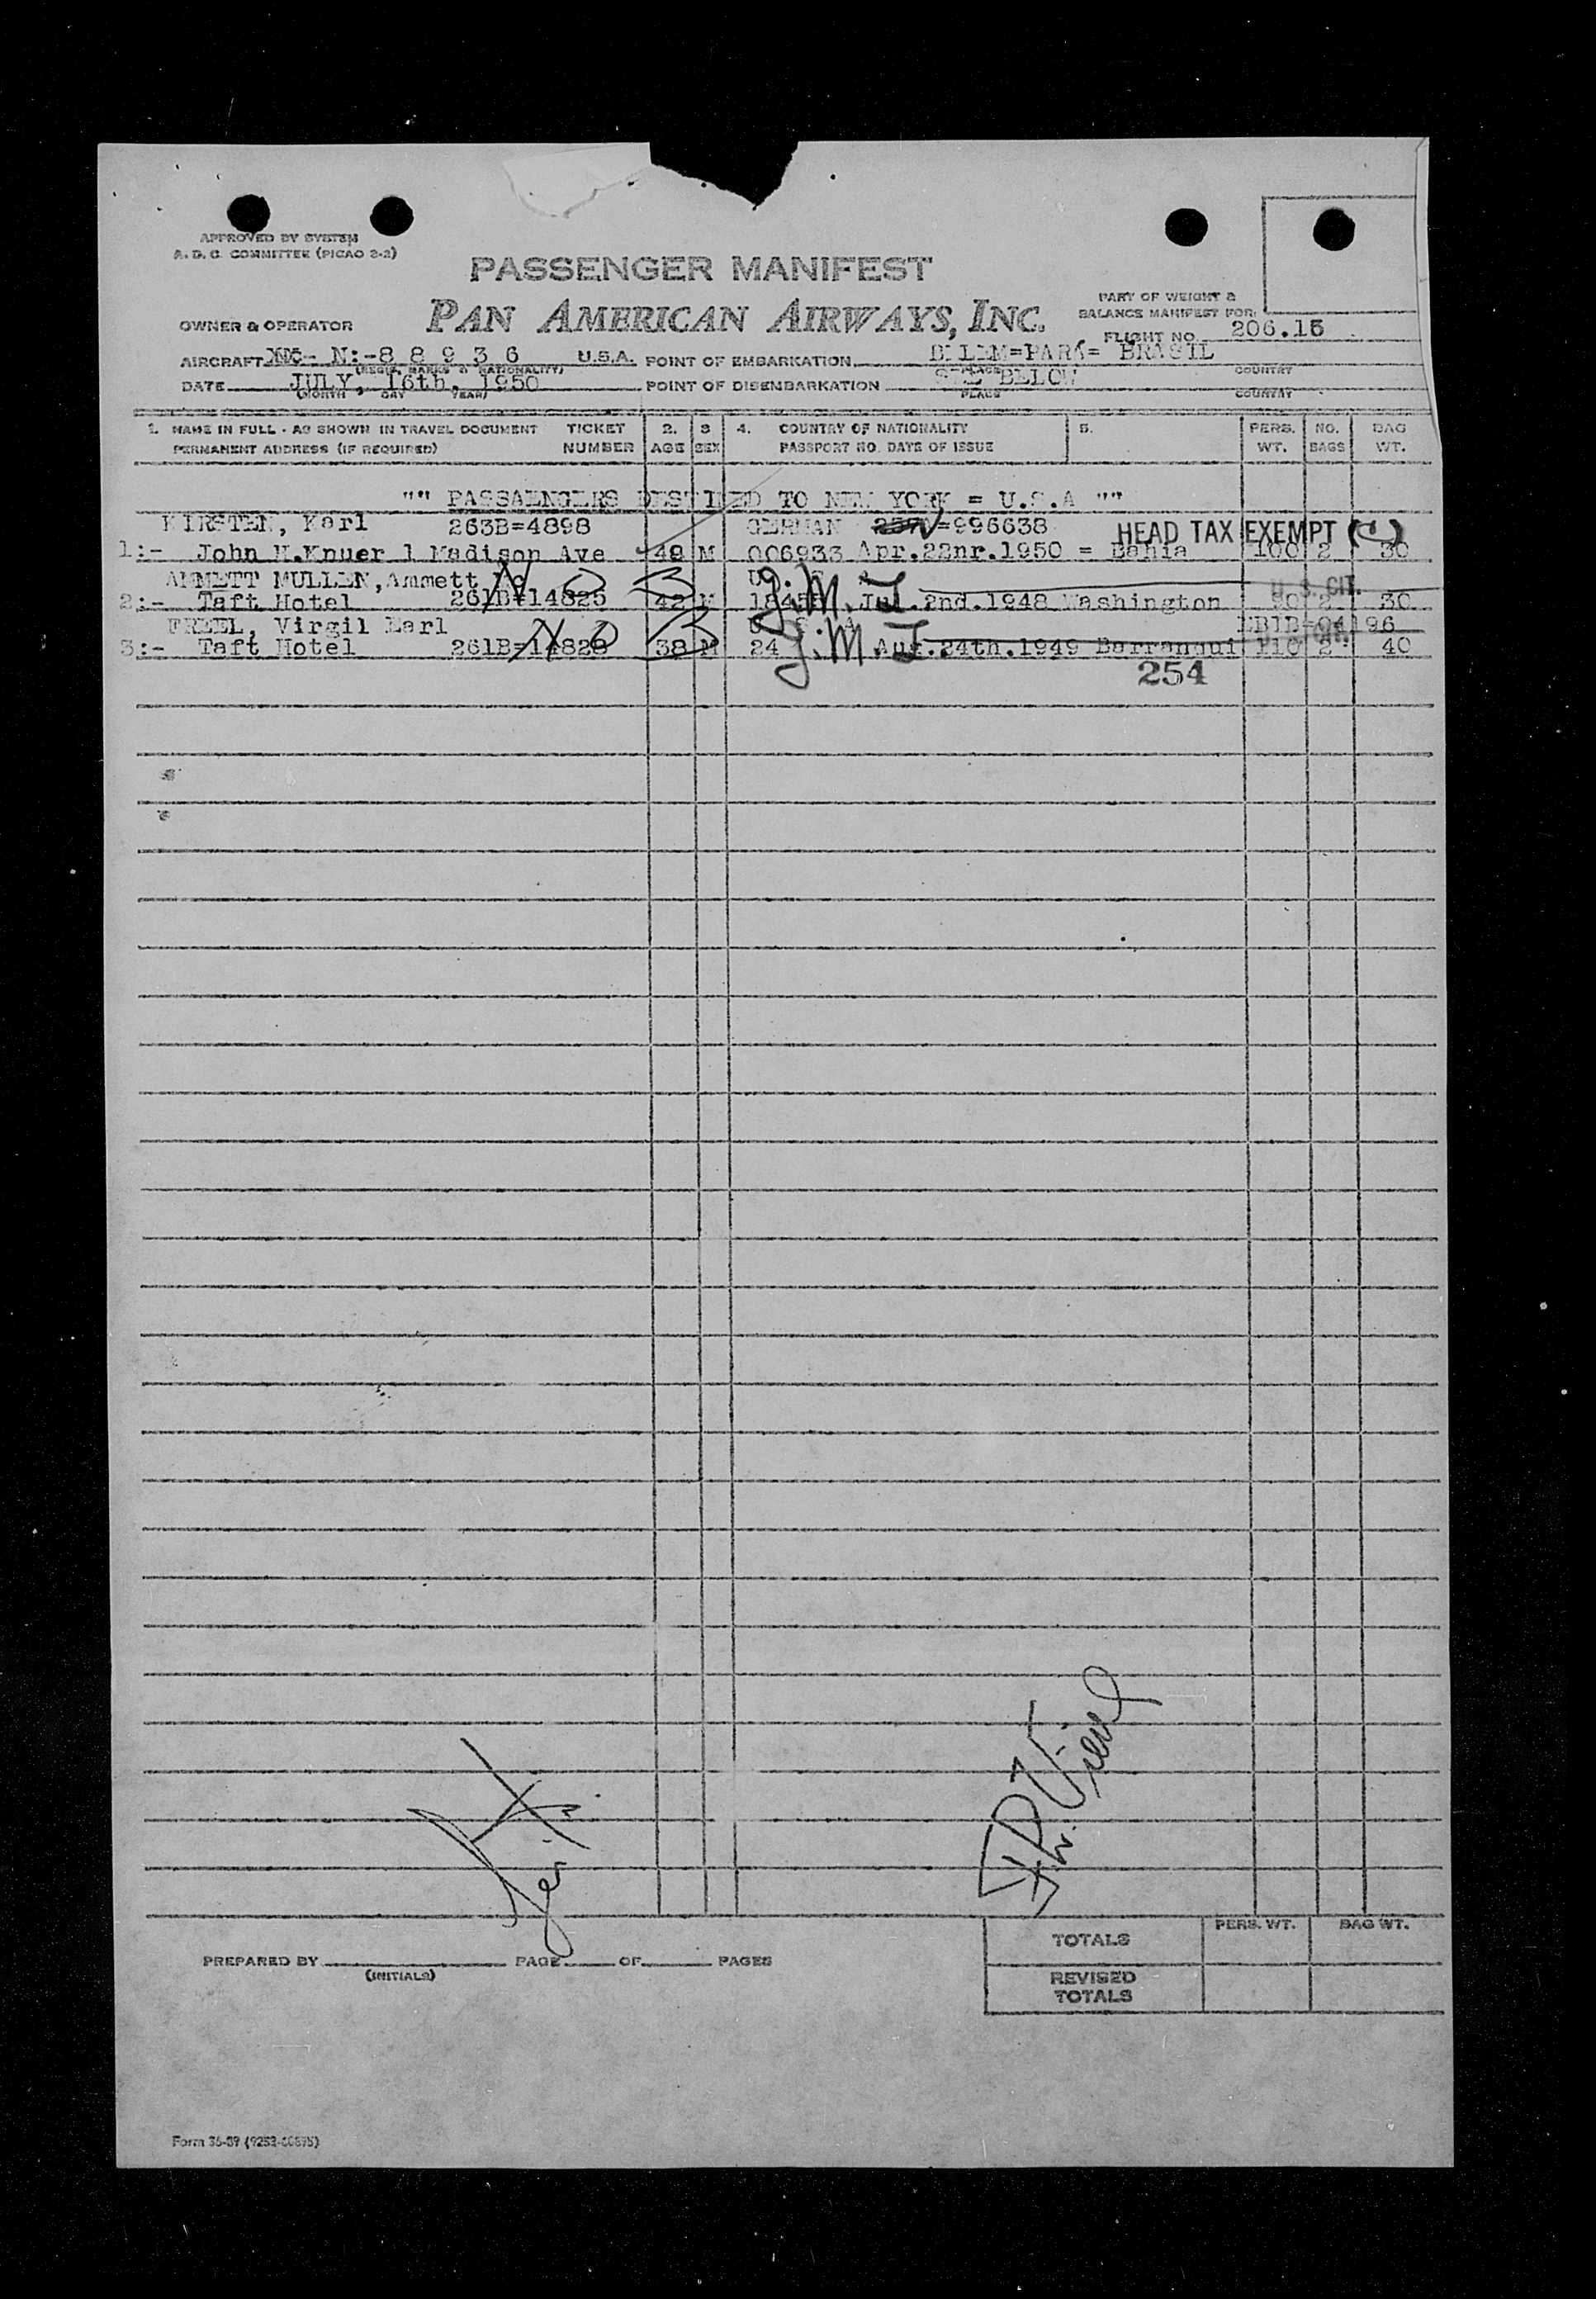 APPROVED BY SYSTEM
A. D. C. COMMITTEE (PICAO 2-2)
PASSENGER MANIFEST
PAN AMERICAN AIRWAYS, INC.
PART OF WEIGHT &
BALANCE MANIFEST FOR:
OWNER & OPERATOR
FLIGHT NO. 206.15
AIRCRAFT N:-8 8 9 3 6 U.S.A. POINT OF EMBARKATION BELEM=PARA= BRASIL
(REGIS. MARKS & NATIONALITY) PLACE COUNTRY
DATE JULY, 16th, 1950 POINT OF DISEMBARKATION SEE BELOW
(MONTH DAY YEAR) PLACE COUNTRY
1. NAME IN FULL - AS SHOWN IN TRAVEL DOCUMENT TICKET 2. 3 4. COUNTRY OF NATIONALITY 5. PERS. NO. BAG
PERMANENT ADDRESS (IF REQUIRED) NUMBER AGE SEX PASSPORT NO. DATE OF ISSUE WT. BAGS WT.
"" PASSAENGERS DESTINED TO NEW YORK = U.S.A ""
KIRSTEN, Karl 263B=4898 GERMAN =996638 HEAD TAX EXEMPT (C)
1:- John H.Knuer 1 Madison Ave 48 M 006933 Apr.22nr.1950 = Bahia 100 2 30
AMMETT MULLEN, Ammett U. S. A U.S. CIT.
2:- Taft Hotel 261B=14825 N O B 42 M J.M.J Jul.2nd.1948 Washington 90 2 30
FREEL, Virgil Earl U. S. A EBIB-04196
3:- Taft Hotel 261B=14826 N O B 38 M 24 J.M.J Aug.24th.1949 Barranqui 110 2 40
254
TOTALS PERS. WT. BAG WT.
PREPARED BY PAGE OF PAGES
(INITIALS)
REVISED
TOTALS
Form 36-09 (9253-60895)